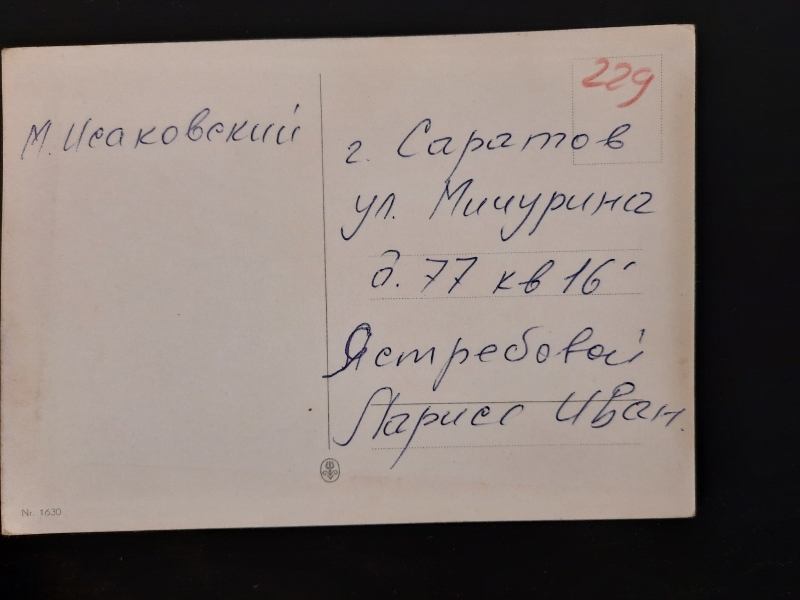 М. Исаковский
229
г. Саратов
ул. Мичурина
д. 77 кв 16
Ястребовой
Ларисе Иван.
Nr. 1630